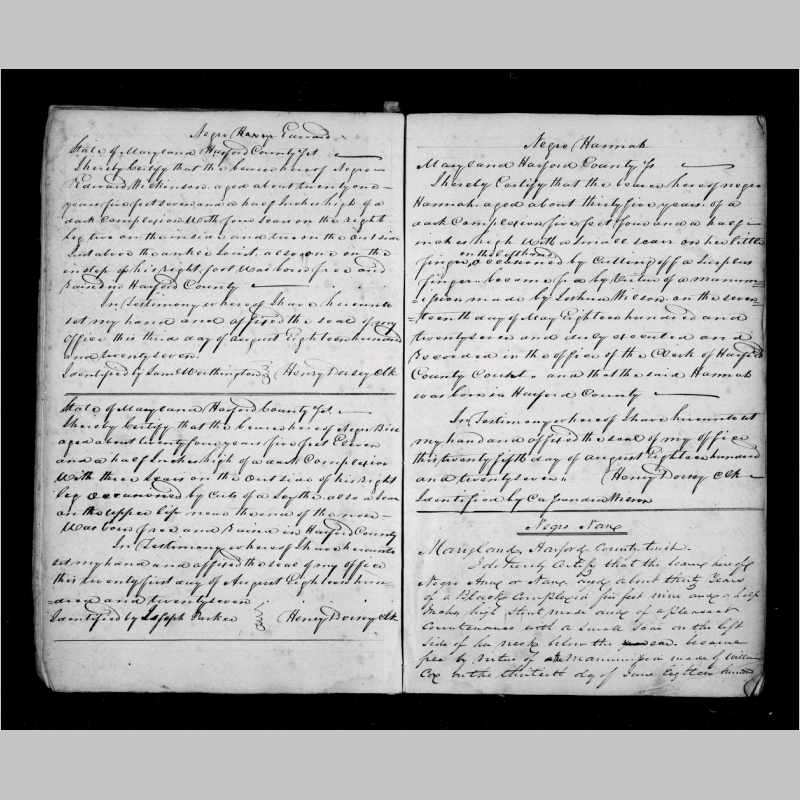 Negro Edward
State of Maryland Harford County Sct
I hereby Certify that the bearer hereof Negro
Edward Wilkinson aged about twenty one
years five feet seven and a half Inches high of a
dark Complexion With four scars on the right
leg two on the inside and two on the out side
Just above the ankle Joint, also one on the
instep of his right foot Was born free and
Raised in Harford County
In Testimony whereof I have hereunto
set my hand and affixed the seal of my
Office this third day of August Eighteen hundred
and twenty seven.
Identified by Saml Worthington Henry Dorsey Clk
State of Maryland Harford County Sct.
I hereby Certify that the bearer hereof Negro Bill
aged about twenty four years five feet Eleven
and a half Inches high of a dark Complexion
With three Scars on the out side of his Right
leg occasioned by Cuts of a Scythe also a scar
on the upper lip near the end of the nose
Was born free and Raised in Harford County
In Testimony whereof I have hereunto
set my hand and affixed the seal of my office
this twenty first day of August Eighteen hun=
=dred and twenty seven
Identified by Joseph Parker Henry Dorsey Clk
Negro Hannah
Maryland Harford County Sc
I hereby Certify that the bearer hereof negro
Hannah aged about thirty five years of a
dark Complexion five feet four and a half
inches high With a small scar on her little
on the left hand
finger, occasioned by Cutting off a
finger became free by Virtue of a manum=
=ission made by Joshua Wilson on the seven=
=teenth day of May Eighteen hundred and
twenty seven and duly executed and
Recorded in the office of the Clerk of Harford
County Court. and that the said Hannah
was born in Harford County
In Testimony whereof I have hereunto set
my hand and affixed the seal of my office
this twenty fifth day of August Eighteen hundred
and twenty seven. Henry Dorsey Clk
Identified by Wilson
Negro Nane
Maryland, Harford County towit.
I do hereby Certify that the bearer hereof
Negro Ann or Nane aged about thirty Years
of a Black Complexion five feet nine and a half
Inches high Stout made and of a pleasant
Countenance with a Small Scar on the left
Side of her neck below the ear. became
free by virtue of a Manumission made by William
Cox on the thirtieth day of June Eighteen hundred